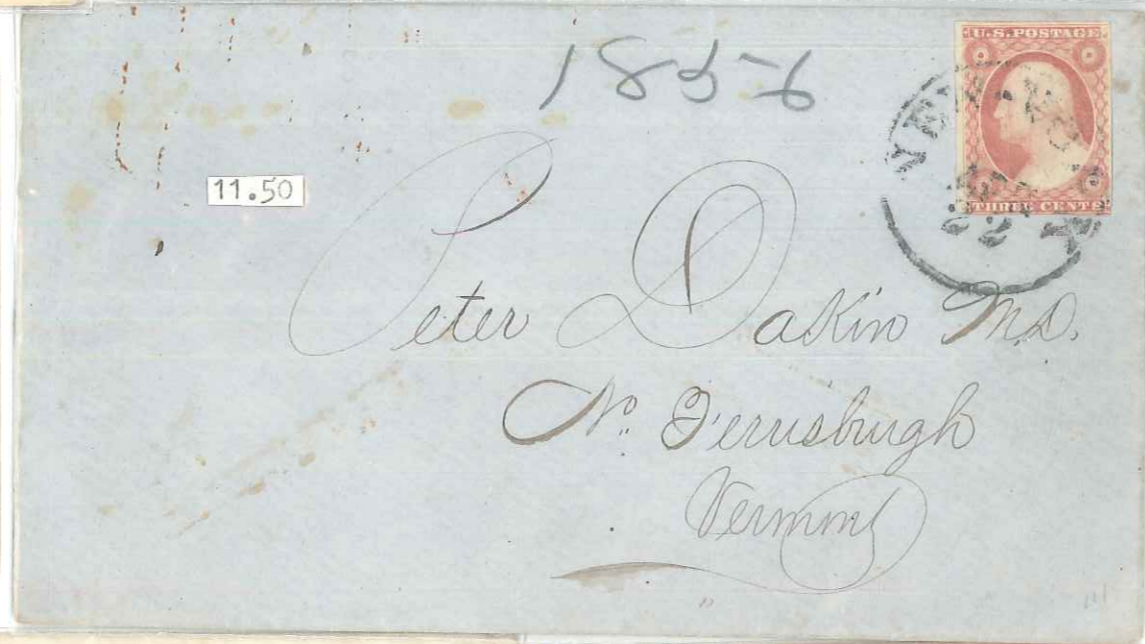 1856
U.S. POSTAGE
THREE CENTS
22
11.50
Peter Dakin M.D.
No. Ferrisburgh
Vermont